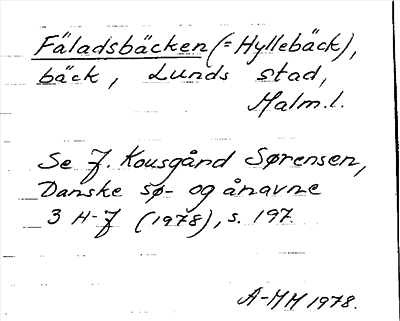 Fäladsbäcken (= Hyllebäck),
bäck, Lunds stad,
Malm.l.
Se J. Kousgård Sørensen,
Danske sø- og ånavne
3 H-J (1978), s. 197
A-MM 1978.